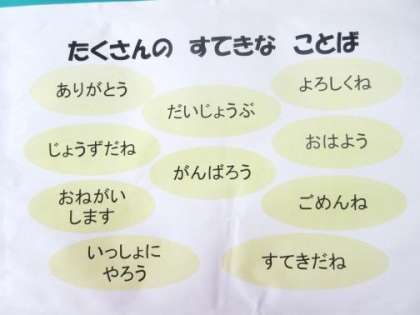 たくさんの すてきな ことば
ありがとう
だいじょうぶ
よろしくね
じょうずだね
がんばろう
おはよう
おねがい
します
ごめんね
いっしょに
やろう
すてきだね